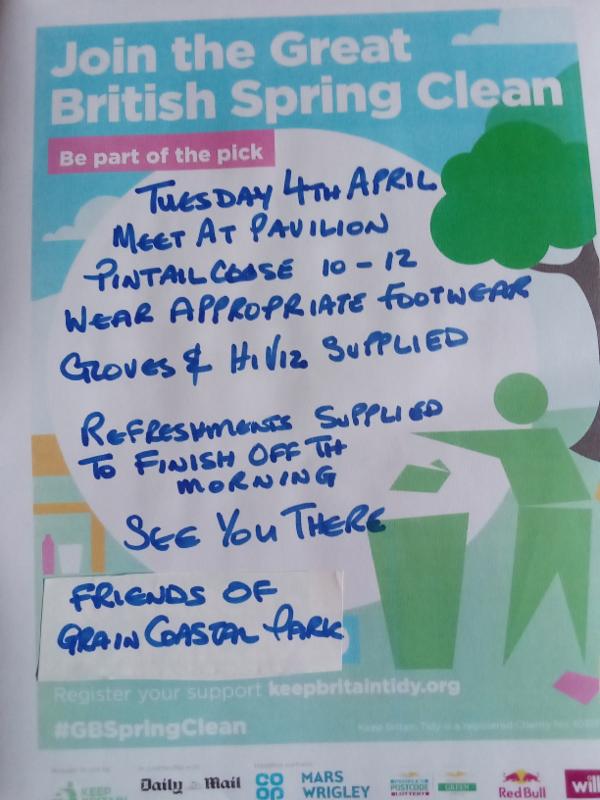 Join the Great
British Spring Clean
Be part of the pick
TUESDAY 4TH APRIL
MEET AT PAVILION
PINTAIL CLOSE 10 - 12
WEAR APPROPRIATE FOOTWEAR
GLOVES & HI VIZ SUPPLIED
REFRESHMENTS SUPPLIED
TO FINISH OFF TH
MORNING
SEE YOU THERE
FRIENDS OF
GRAIN COASTAL PARK
Register your support keepbritaintidy.org
#GBSpringClean
Keep Britain Tidy is a registered Charity No.
KEEP
Daily Mail
CO
OP
MARS
WRIGLEY
PEOPLE'S
POSTCODE
LOTTERY
GREEN
Red Bull
will